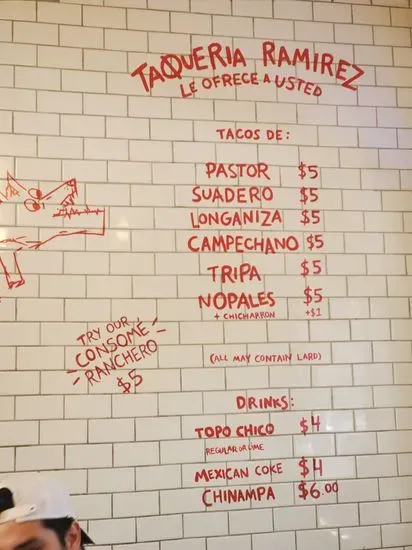 TAQUERIA RAMIREZ
LE OFRECE A USTED
TACOS DE:
PASTOR $5
SUADERO $5
LONGANIZA $5
CAMPECHANO $5
TRIPA $5
NOPALES $5
+ CHICHARRON +$1
TRY OUR
CONSOMÉ
RANCHERO
$5
(ALL MAY CONTAIN LARD)
DRINKS:
TOPO CHICO $4
REGULAR OR LIME
MEXICAN COKE $4
CHINAMPA $6.00